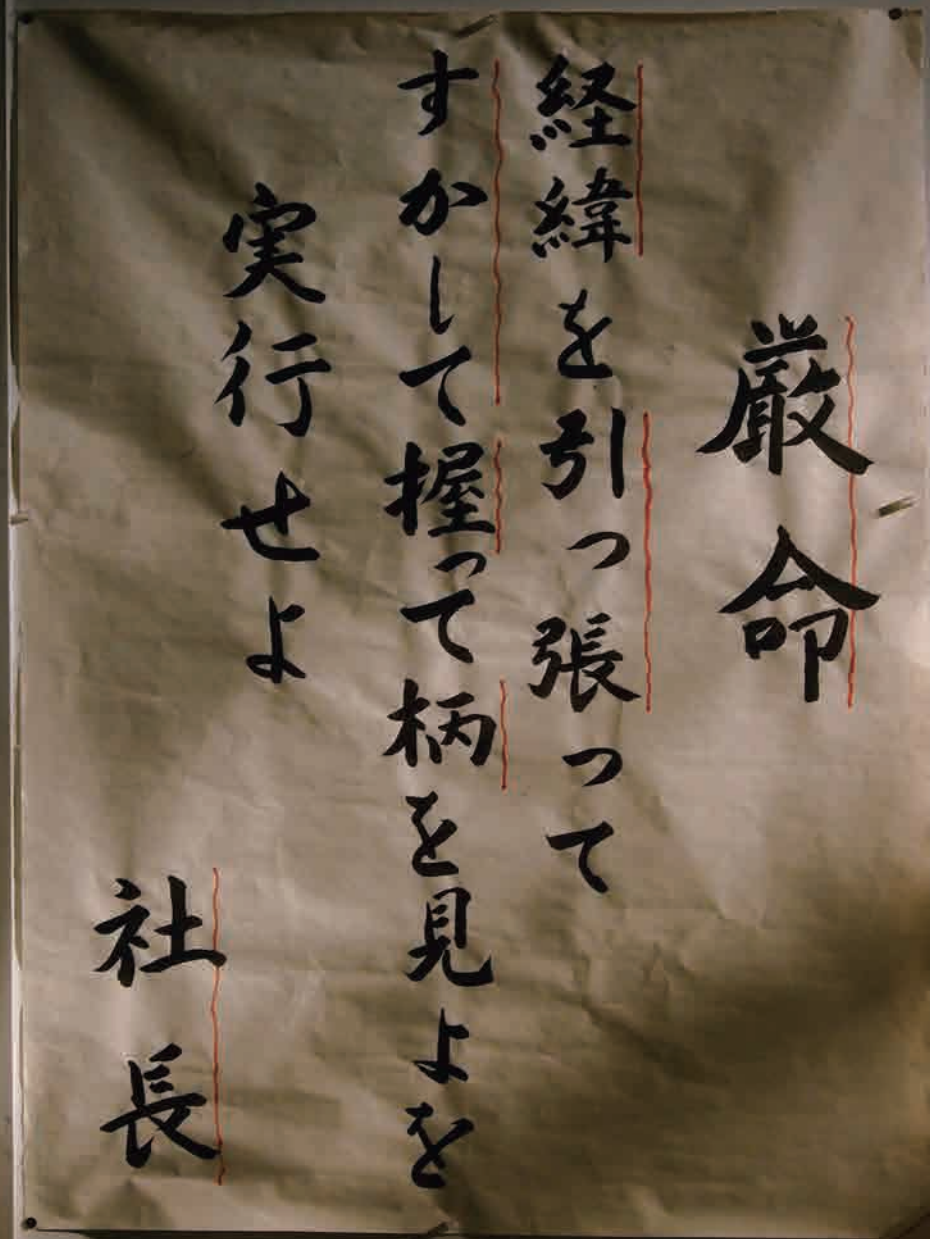 厳命
経緯を引っ張って
すかして握って柄を見よを
実行せよ
社長